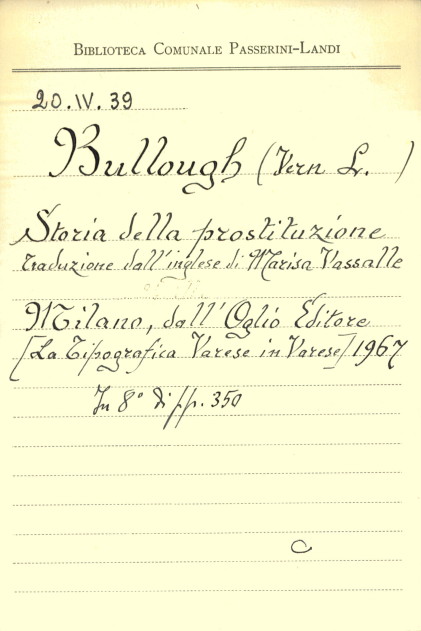 BIBLIOTECA COMUNALE PASSERINI-LANDI
20.IV.39
Bullough (Vern L. )
Storia della prostituzione
traduzione dall'inglese di Marisa Vassalle
Milano, dall'Oglio Editore
[La Tipografica Varese in Varese] 1967
In 8° di pp. 350
C